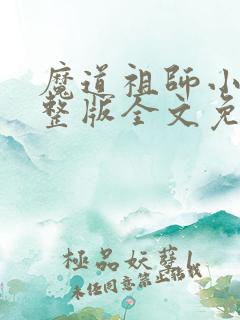 魔道祖師小
整版全文免
極品妖孽1
未任同意禁止传找